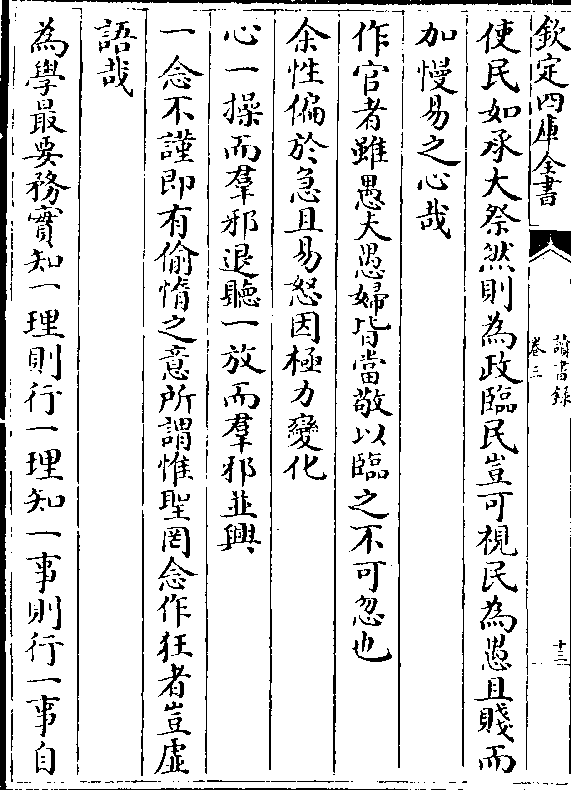 欽定四庫全書
讀書錄
卷三
十三
使民如承大祭然則為政臨民豈可視民為愚且賤而
加慢易之心哉
作官者雖愚夫愚婦皆當敬以臨之不可忽也
余性偏於急且易怒因極力變化
心一操而羣邪退聽一放而羣邪並興
一念不謹即有偷惰之意所謂惟聖罔念作狂者豈虛
語哉
為學最要務實知一理則行一理知一事則行一事自